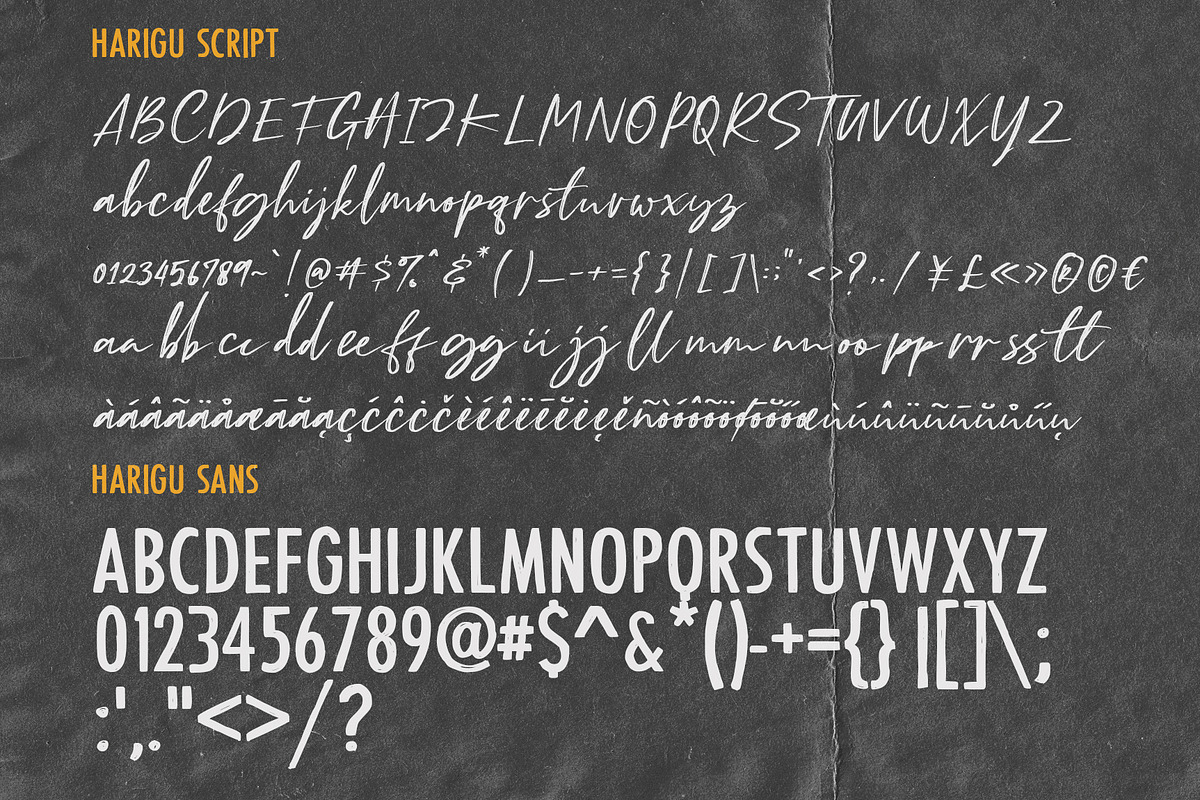 HARIGU SCRIPT
ABCDEFGHIJKLMNOPQRSTUVWXYZ
abcdefghijklmnopqrstuvwxyz
0123456789~`!@#$%^&*()_-+={}|[]\:;"'<>?,./¥£«»®©€
aa bb cc dd ee ff gg ii jj ll mm nn oo pp rr ss tt
àáâãäåæāăąçćĉċčèéêëēĕėęěñòóôõöøōŏőœùúûüũūŭůűų
HARIGU SANS
ABCDEFGHIJKLMNOPQRSTUVWXYZ
0123456789@#$^&*()-+={}|[]\;
:',."<>/?